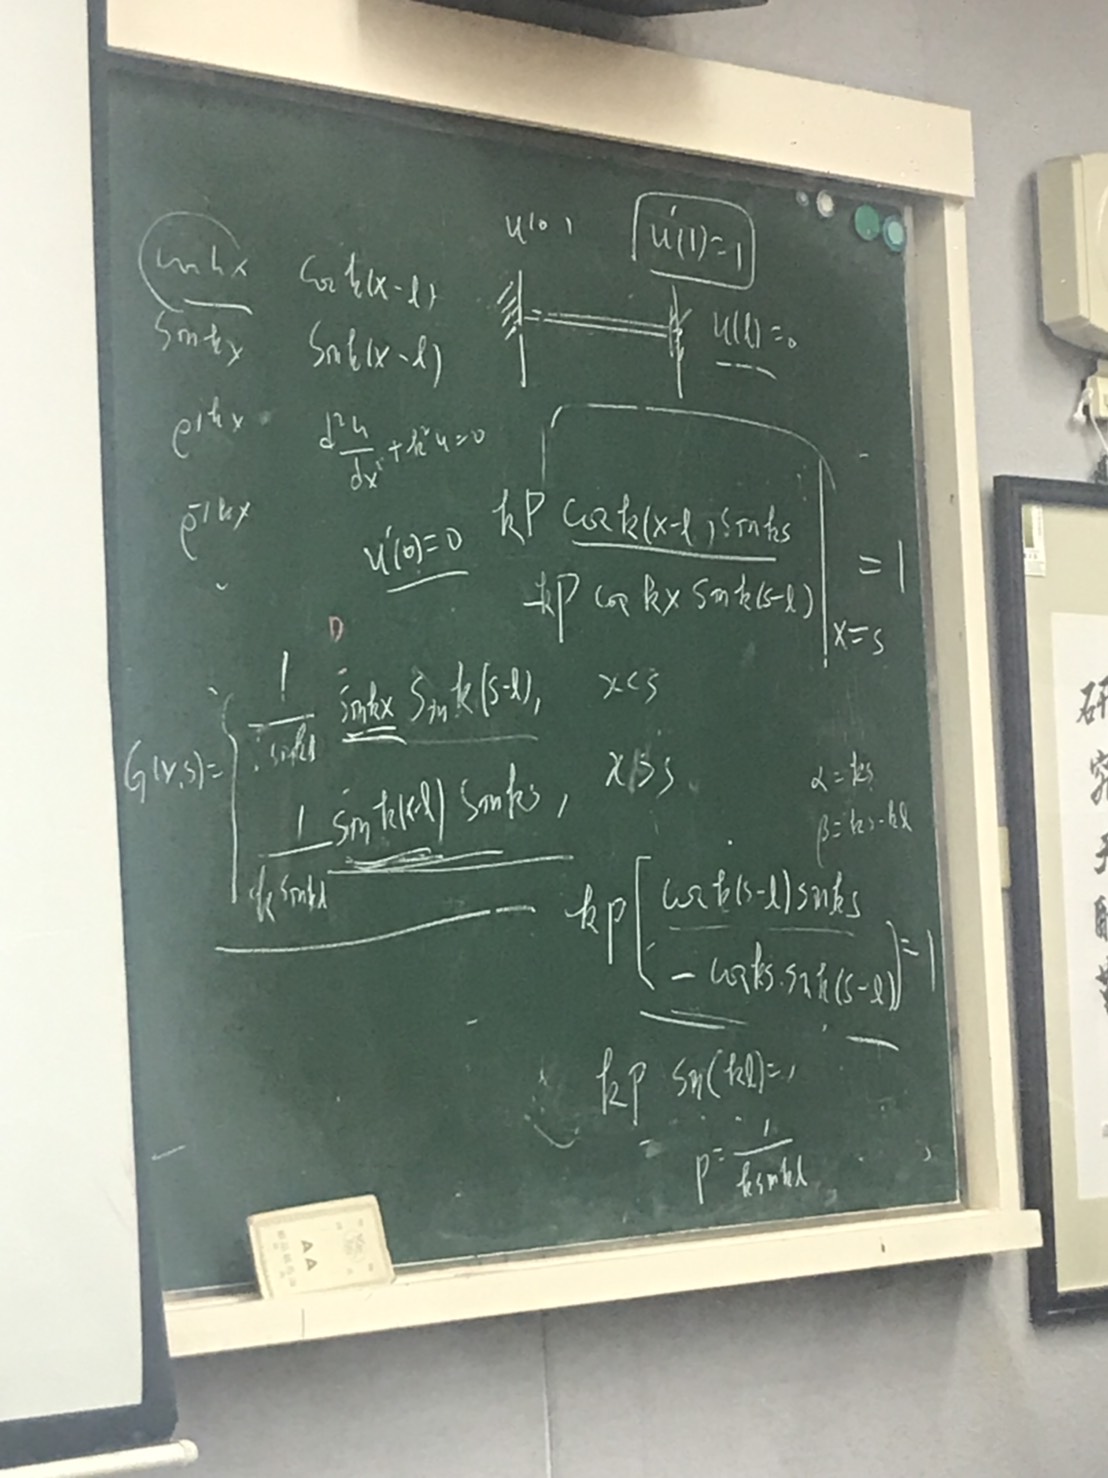 u(0)
u'(1)=1
cos kx cos k(x-l)
sin kx sin k(x-l)
u(l)=0
e^{ikx}
d²u/dx² + k²u=0
e^{-ikx}
u'(0)=0
kp cos k(x-l) sin ks
-kp cos kx sin k(s-l) | x=s =1
G(x,s)= { 1/(k sin kl) sin kx sin k(s-l), x<s
1/(k sin kl) sin k(x-l) sin ks, x>s
α=ks
β=ks-kl
kp [ cos k(s-l) sin ks
- cos ks · sin k(s-l) ] =1
kp sin(kl)=1
p= 1/(k sin kl)
AA
研
究